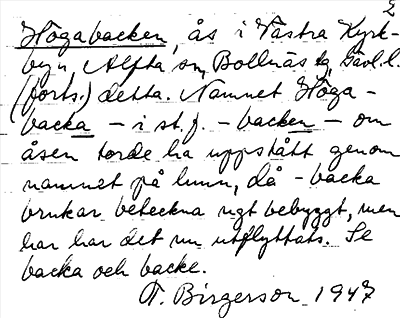 2
Högabacken, ås i Västra Kyrk-
byn, Alfta sn, Bollnäs tg, Gävl. l.
(forts.) detta. Namnet Höga-
backa - i st. f. - backen - om
åsen torde ha uppstått genom
namnet på hmn, då - backa
brukar beteckna ngt bebyggt, men
har har det nu utflyttats. Se
backa och backe.
T. Birgerson 1947